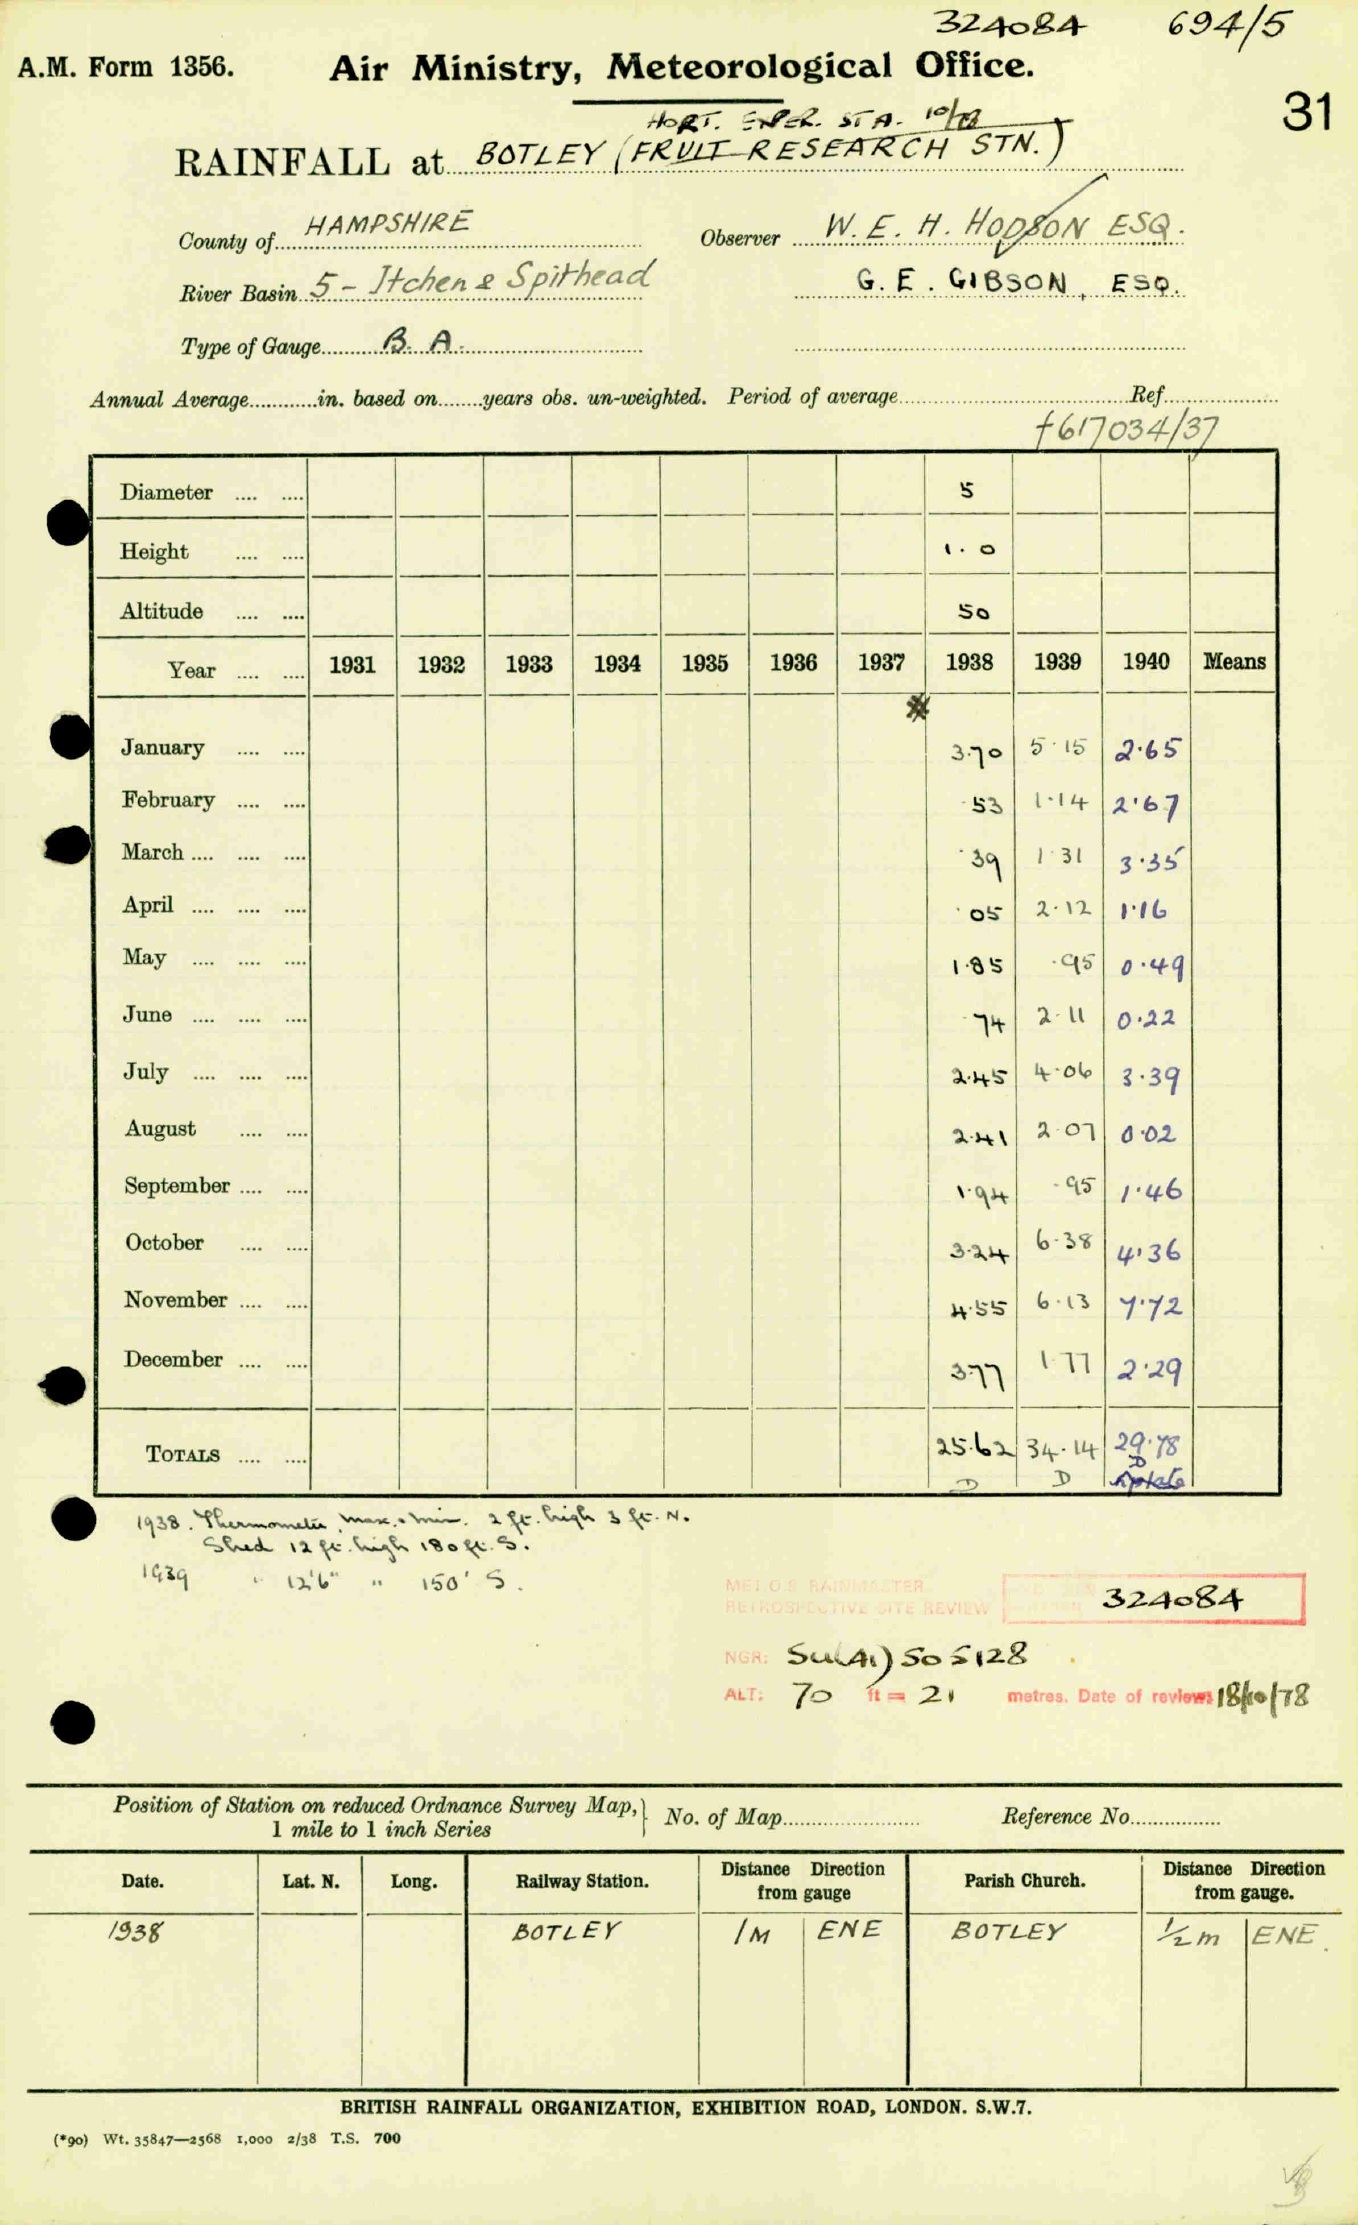 324084 694/5
A.M. Form 1356. Air Ministry, Meteorological Office.
31
HORT. EXPER. STA. 10/78
RAINFALL at BOTLEY (FRUIT RESEARCH STN.)
County of HAMPSHIRE Observer W. E. H. HODSON ESQ.
River Basin 5 - Itchen & Spithead G. E. GIBSON, ESQ.
Type of Gauge B. A.
Annual Average............in. based on........years obs. un-weighted. Period of average.................... Ref...................
†617034/37
Diameter .... .... 5
Height .... .... 1.0
Altitude .... .... 50
Year .... .... 1931 1932 1933 1934 1935 1936 1937 1938 1939 1940 Means
January .... .... 3.70 5.15 2.65
February .... .... .53 1.14 2.67
March .... .... .... .39 1.31 3.35
April .... .... .... .05 2.12 1.16
May .... .... .... 1.85 .95 0.49
June .... .... .... .74 2.11 0.22
July .... .... .... 2.45 4.06 3.39
August .... .... 2.41 2.07 0.02
September .... .... 1.94 .95 1.46
October .... .... 3.24 6.38 4.36
November .... .... 4.55 6.13 7.72
December .... .... 3.77 1.77 2.29
TOTALS .... .... 25.62 34.14 29.78
D D D
1938. Thermometer, max. & min. 2 ft. high 3 ft. N.
Shed 12 ft. high 180 ft. S.
1939 " 12'6" " 150' S.
MET O.8 RAINMASTER
RETROSPECTIVE SITE REVIEW 324084
NGR: SU(41) 505128
ALT: 70 ft = 21 metres. Date of review: 18/10/78
Position of Station on reduced Ordnance Survey Map, No. of Map........................ Reference No................
1 mile to 1 inch Series
Date. Lat. N. Long. Railway Station. Distance Direction from gauge Parish Church. Distance Direction from gauge.
1938 BOTLEY 1M ENE BOTLEY ½m ENE.
BRITISH RAINFALL ORGANIZATION, EXHIBITION ROAD, LONDON. S.W.7.
(*90) Wt. 35847—2568 1,000 2/38 T.S. 700